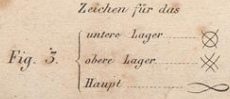 Zeichen für das
untere Lager
Fig. 3. obere Lager
Haupt